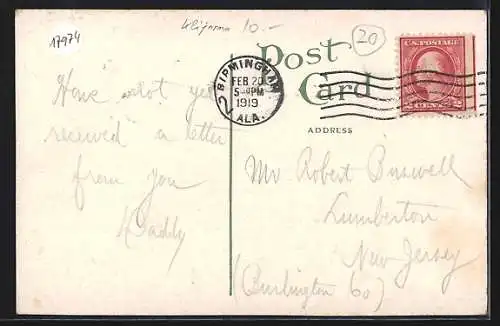 17974
10.-
20
Post
Card
BIRMINGHAM
FEB 20
5 PM
1919
ALA.
2
U.S. POSTAGE
2 CENTS 2
ADDRESS
Have not yet
received a letter
from you
Daddy
Mr Robert Buswell
Lumberton
New Jersey
(Burlington Co)